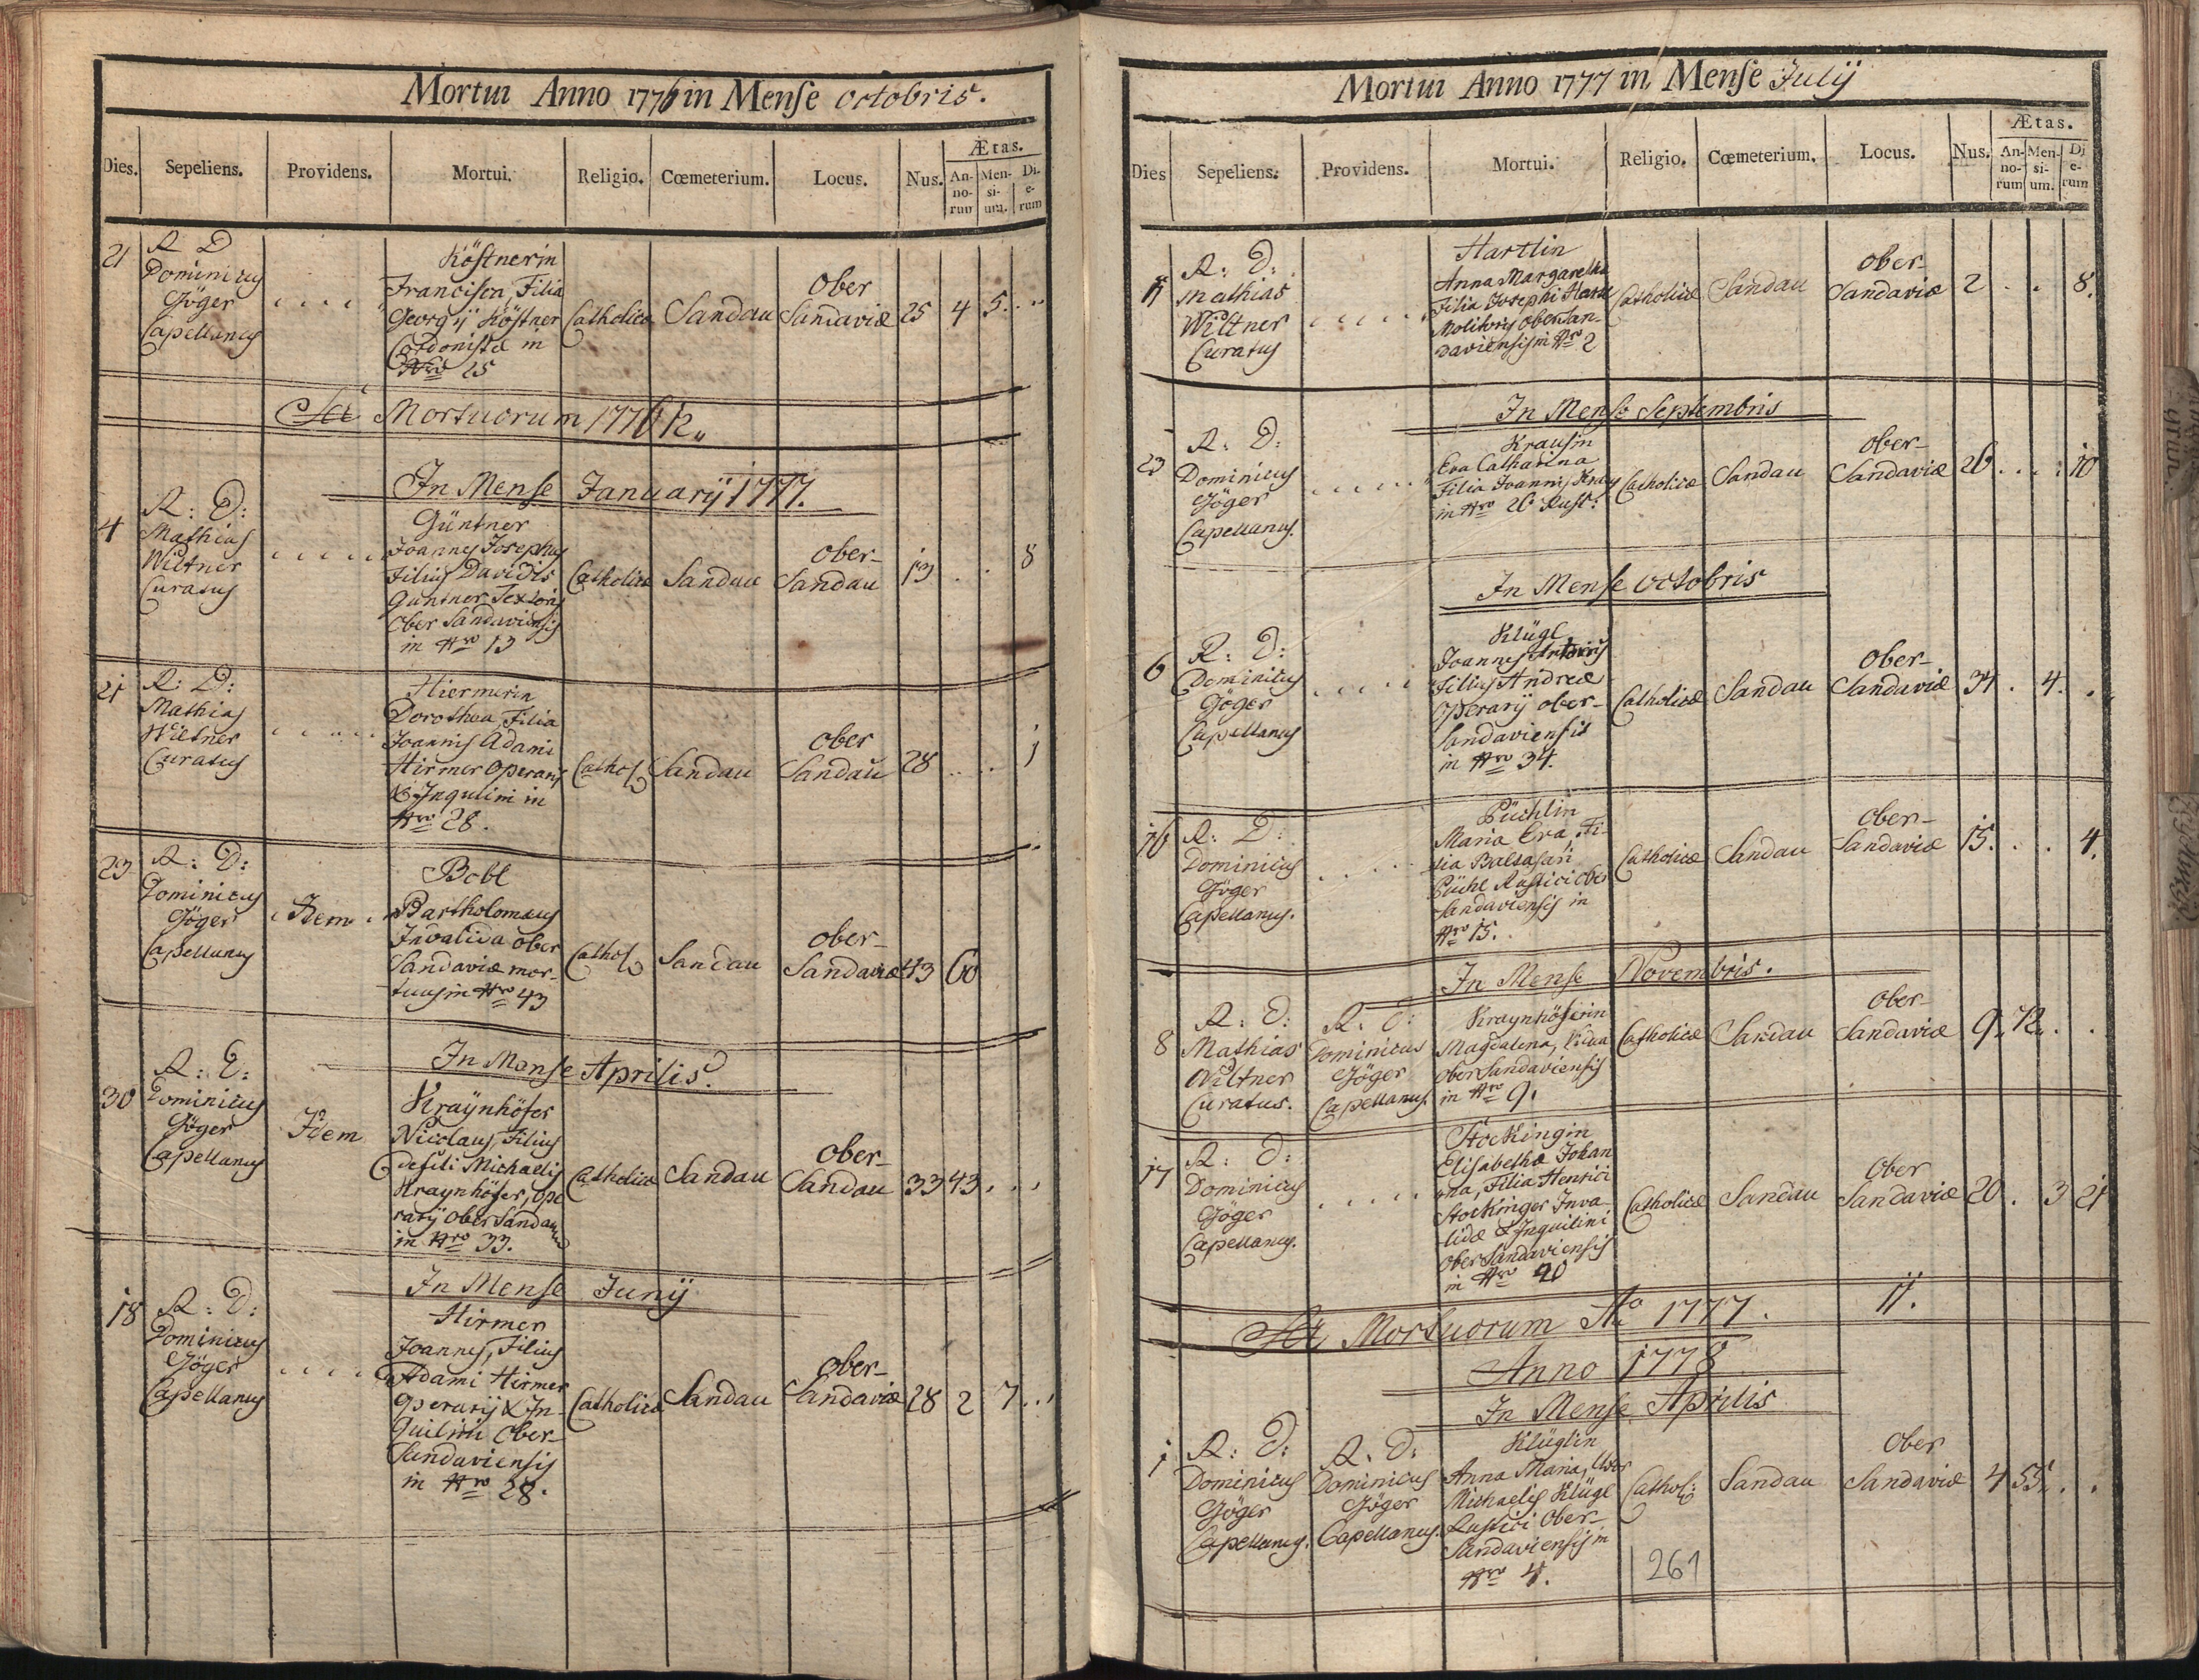 Mortui Anno 1776 in Mense octobris.
Dies. Sepeliens. Providens. Mortui. Religio. Cœmeterium. Locus. Nus. Ætas.
An-no-rum Men-si-um. Di-e-rum
21
R D
Dominicus
Jöger
Capellanus
Köstnerin
Francisca, Filia
Georgÿ Köstner
Cordonistæ in
Nro 25
Catholica
Sandau
Ober
Sandaviæ
25 4 5
Mortuorum 1776 12
In Mense Januarÿ 1777.
4
R: D:
Mathias
Wiltner
Curatus
Güntner
Joannes Josephus
Filius Davidis
Güntner Textoris
Ober Sandaviensis
in Nro 13
Catholica
Sandau
Ober-
Sandau
13 . . 8
21
R: D:
Mathias
Wiltner
Curatus
Hiermerin
Dorothea, Filia
Joannis Adami
Hirmer Operarij
& Inquilini in
Nro 28.
Cathol
Sandau
Ober
Sandau
28 . . 1
23
R: D:
Dominicus
Jöger
Capellanus
Idem
Bobl
Bartholomæus
Invalida Ober
Sandaviæ mor-
tuus in Nro 43
Cathol
Sandau
Ober-
Sandaviæ
43 60
In Mense Aprilis.
30
R: D:
Dominicus
Jöger
Capellanus
Idem
Kraÿnhöfer
Nicolaus, Filius
Michaelis
Kraynhöfer, ope
rarÿ Ober Sandau
in Nro 33.
Catholica
Sandau
Ober-
Sandau
33 43 . .
In Mense Junÿ
18
R: D:
Dominicus
Jöger
Capellanus
Hirmer
Joannes, Filius
Adami Hirmer
Operarÿ & In-
quilini Ober-
Sandaviensis
in Nro 28.
Catholica
Sandau
Ober-
Sandaviæ
28 2 7
Mortui Anno 1777 in Mense Julÿ
Dies Sepeliens. Providens. Mortui. Religio. Cœmeterium. Locus. Nus. Ætas.
An-no-rum Men-si-um. Di-e-rum
11
R: D:
Mathias
Wiltner
Curatus
Hartlin
Anna Margaretha
Filia Josephi Hartl
Molitoris Ober San-
daviensis in Nro 2
Catholicæ
Sandau
Ober-
Sandaviæ
2 . . 8.
In Mense Septembris
23
R: D:
Dominicus
Jöger
Capellanus.
Krausin
Eva Catharina
Filia Joannis Kraus
in Nro 26 Rust:
Catholicæ
Sandau
Ober-
Sandaviæ
26 . . 10
In Mense Octobris
6
R: D:
Dominicus
Jöger
Capellanus
Klügl
Joannes Antonius
Filius Andreæ
Operarÿ Ober-
Sandaviensis
in Nro 34.
Catholicæ
Sandau
Ober-
Sandaviæ
34 . 4. .
16
R: D:
Dominicus
Jöger
Capellanus.
Püchlin
Maria Eva, Fi-
lia Baltasari
Püchl Rustici Ober
Sandaviensis in
Nro 15.
Catholicæ
Sandau
Ober-
Sandaviæ
15. . . 4.
In Mense Novembris.
8
R: D:
Mathias
Wiltner
Curatus.
R: D:
Dominicus
Jöger
Capellanus.
Kraynhöferin
Magdalena, Vidua
Ober Sandaviensis
in Nro 9.
Catholicæ
Sandau
Ober-
Sandaviæ
9. 72. . .
17
R: D:
Dominicus
Jöger
Capellanus.
Stockingin
Elisabetha Johan
na, Filia Henrici
Stockinger Inva
lidæ & Inquilini
Ober Sandaviensis
in Nro 20
Catholicæ
Sandau
Ober
Sandaviæ
20 . 3 21
Mortuorum Ao 1777. 11.
Anno 1778
In Mense Aprilis
1
R: D:
Dominicus
Jöger
Capellanus.
R: D:
Dominicus
Jöger
Capellanus.
Klüglin
Anna Maria, Uxor
Michaelis Klügl
Rustici Ober-
Sandaviensis in
Nro 4.
Cathol:
Sandau
Ober
Sandaviæ
4 55. . .
261